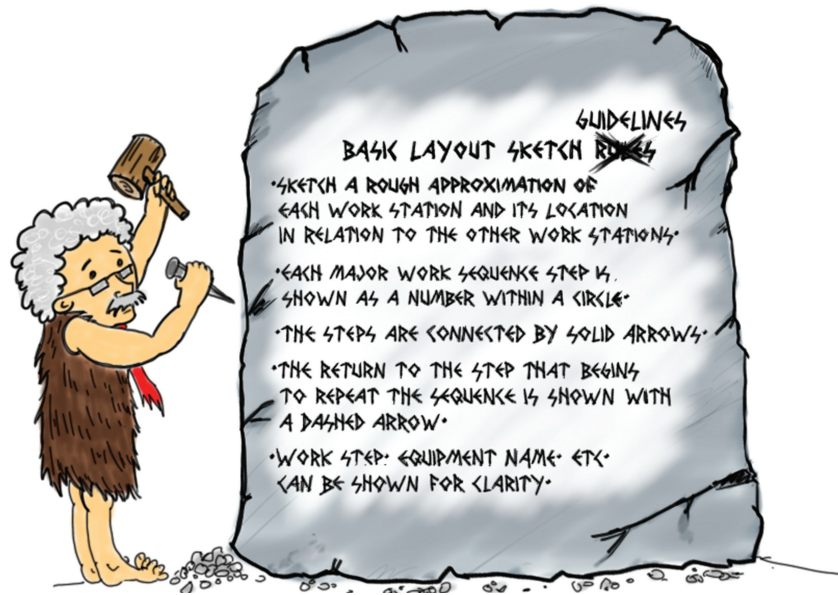 GUIDELINES
BASIC LAYOUT SKETCH RULES
•SKETCH A ROUGH APPROXIMATION OF
EACH WORK STATION AND ITS LOCATION
IN RELATION TO THE OTHER WORK STATIONS•
•EACH MAJOR WORK SEQUENCE STEP IS
SHOWN AS A NUMBER WITHIN A CIRCLE•
•THE STEPS ARE CONNECTED BY SOLID ARROWS•
•THE RETURN TO THE STEP THAT BEGINS
TO REPEAT THE SEQUENCE IS SHOWN WITH
A DASHED ARROW•
•WORK STEP• EQUIPMENT NAME• ETC•
CAN BE SHOWN FOR CLARITY•